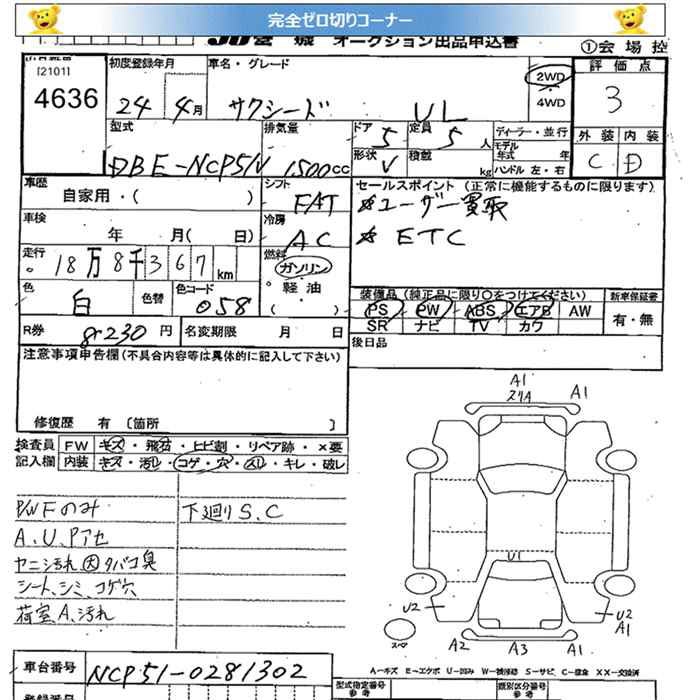 完全ゼロ切りコーナー
オークション出品申込書
①会場控
[2101]
4636
初度登録年月
24年4月
車名・グレード
サクシード UL
2WD
4WD
評価点
3
外装 内装
C D
型式
DBE-NCP51V
排気量
1500cc
ドア
5
定員
5人
形状
V
積載
kg
ディーラー・並行
モデル年式 年
ハンドル 左・右
車歴
自家用・( )
シフト
FAT
セールスポイント (正常に機能するものに限ります)
☆ユーザー買取
☆ETC
車検
年 月( 日)
冷房
AC
走行
18万8千367km
燃料
ガソリン
軽油
( )
色
白
色替
色コード
058
装備品(純正品に限り○をつけてください)
PS PW ABS エアB AW
SR ナビ TV カワ
新車保証書
有・無
R券
円
名変期限 月 日
後日品
注意事項申告欄(不具合内容等は具体的に記入して下さい)
修復歴 有 〔箇所 〕
検査員記入欄
FW キズ・飛石・ヒビ割・リペア跡・×要
内装 キズ・汚レ・コゲ・穴・スレ・キレ・破レ
P/W Fのみ
下廻りS、C
A、U、Pアセ
ヤニ汚れ 因 タバコ臭
シート、シミ、コゲ穴
荷室A、汚れ
A1
スリA
A1
U1
U2
U2
A1
スペア
A2
A3
A1
車台番号
NCP51-0281302
A－キズ E－エクボ U－凹み W－補修跡 S－サビ C－腐食 XX－交換済
型式指定番号
参考
類別区分番号
参考
登録番号